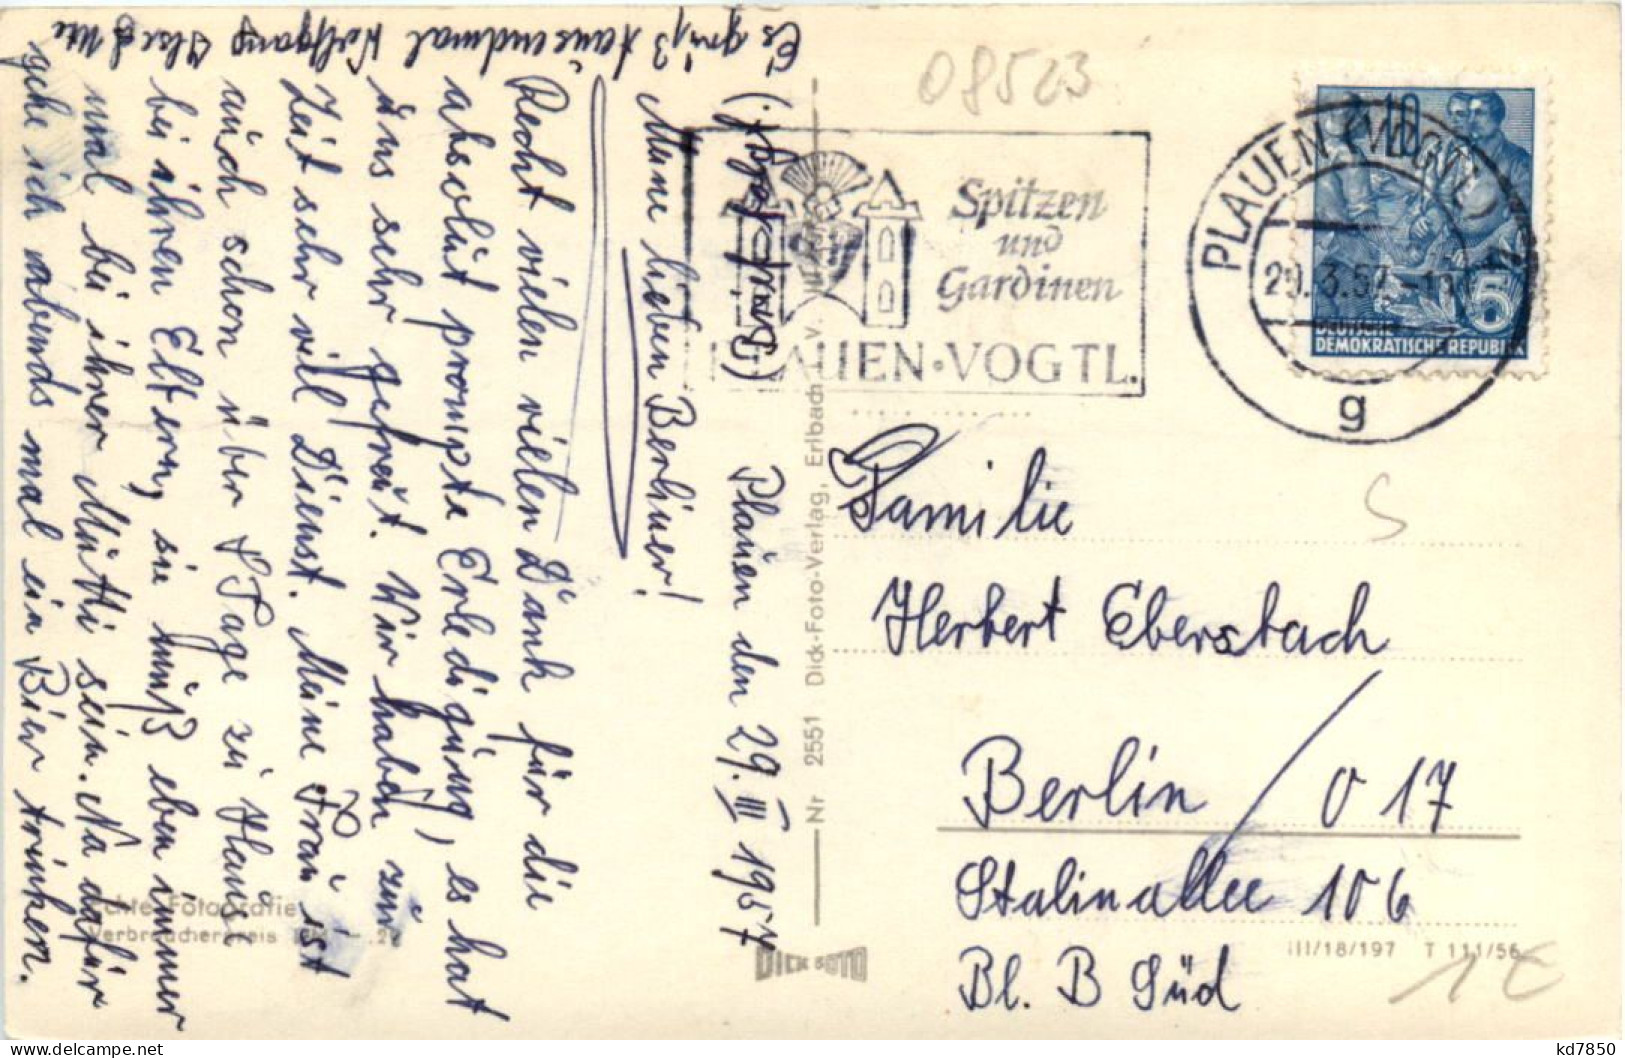 Plauen den 29. III 1957
Meine lieben Berliner!
Recht vielen vielen Dank für die
absolut prompte Erledigung, es hat
uns sehr gefreut. Wir haben zur
Zeit sehr viel Dienst. Meine Frau ist
auch schon über 8 Tage zu Haus
bei ihren Eltern, sie muß eben immer
mal bei ihrer Mutti sein. Na dafür
gehe ich abends mal ein Bier trinken.
Es grüß tausendmal Wolfgang Ilse & Ute
08523
Spitzen
und
Gardinen
PLAUEN · VOGTL.
PLAUEN (VOGTL)
29.3.57
g
10
5
DEUTSCHE
DEMOKRATISCHE REPUBLIK
Familie
Herbert Eberstach
Berlin O 17
Stalinallee 106
Bl. B Süd
S
1€
III/18/197 T 111/56
Nr 2551 Dick-Foto-Verlag, Erlbach i. V.
DICK FOTO
Echte Fotografie
Verbraucherpreis
kd7850